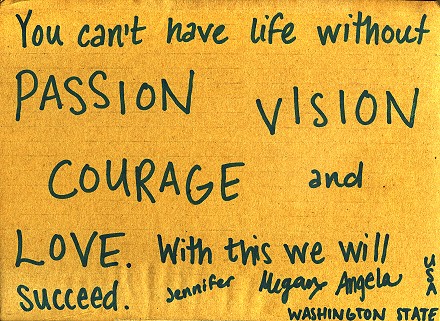 You can't have life without
PASSION VISION
COURAGE and
LOVE. With this we will
succeed. Jennifer Megan Angela
USA
WASHINGTON STATE